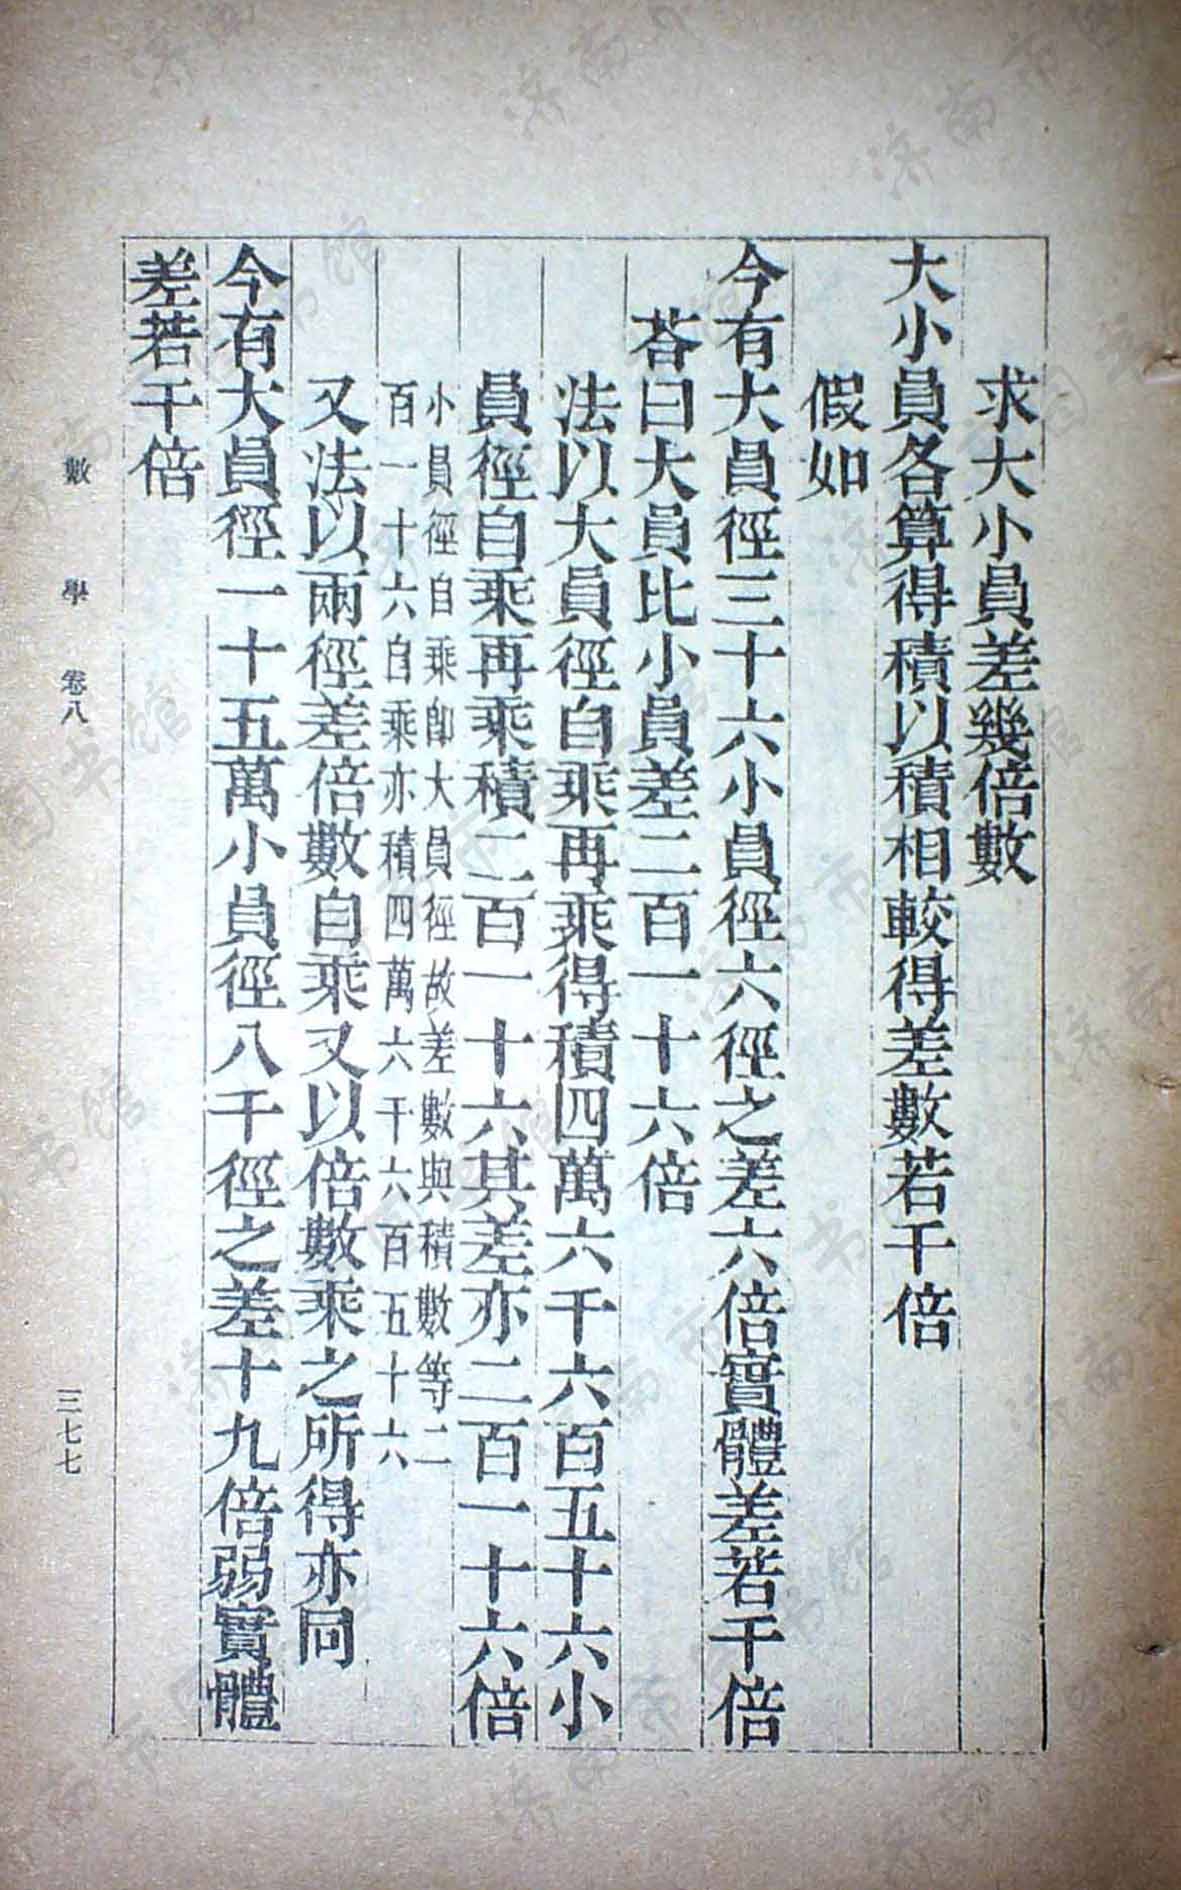 求大小員差幾倍數
大小員各算得積以積相較得差數若干倍
假如
今有大員徑三十六小員徑六徑之差六倍實體差若干倍
荅曰大員比小員差二百一十六倍
法以大員徑自乘再乘得積四萬六千六百五十六小
員徑自乘再乘積二百一十六其差亦二百一十六倍
小員徑自乘即大員徑故差數與積數等二
百一十六自乘亦積四萬六千六百五十六
又法以兩徑差倍數自乘又以倍數乘之所得亦同
今有大員徑一十五萬小員徑八千徑之差十九倍弱實體
差若干倍
數學 卷八
三七七